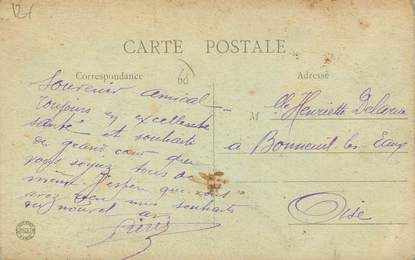 CARTE POSTALE
Correspondance
Adresse
Souvenir amical
Toujours en excellente
santé et souhaite
de grand cœur que
vous soyez tous de
même. J'espère que vous
avez mes souhaits
au nouvel an
Mlle Henriette Delarue
à Bonneuil-les-Eaux
Oise